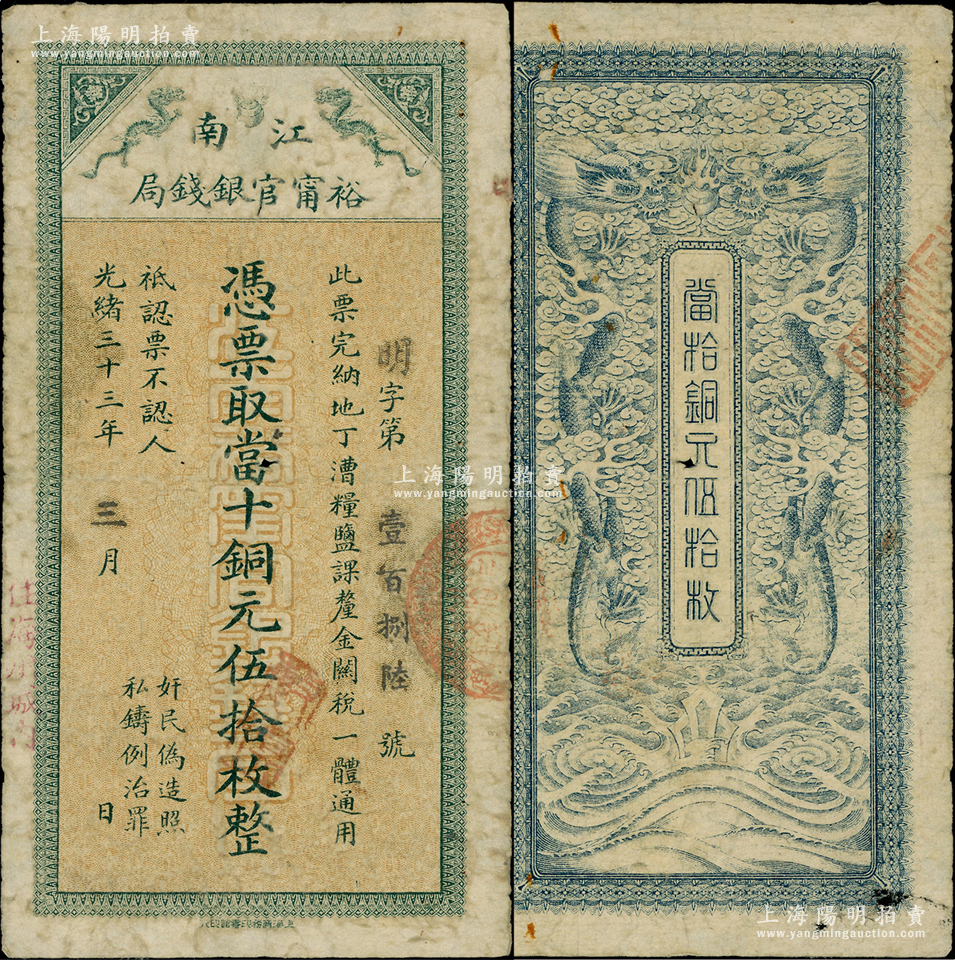 上海陽明拍賣
www.yangmingauction.com
江南
裕甯官銀錢局
明字第壹百捌陸號
此票完納地丁漕糧鹽課釐金關稅一體通用
憑票取當十銅元伍拾枚整
祗認票不認人
奸民偽造照
私鑄例治罪
光緒三十三年三月日
當拾銅元伍拾枚
上海陽明拍賣
www.yangmingauction.com
上海陽明拍賣
www.yangmingauction.com